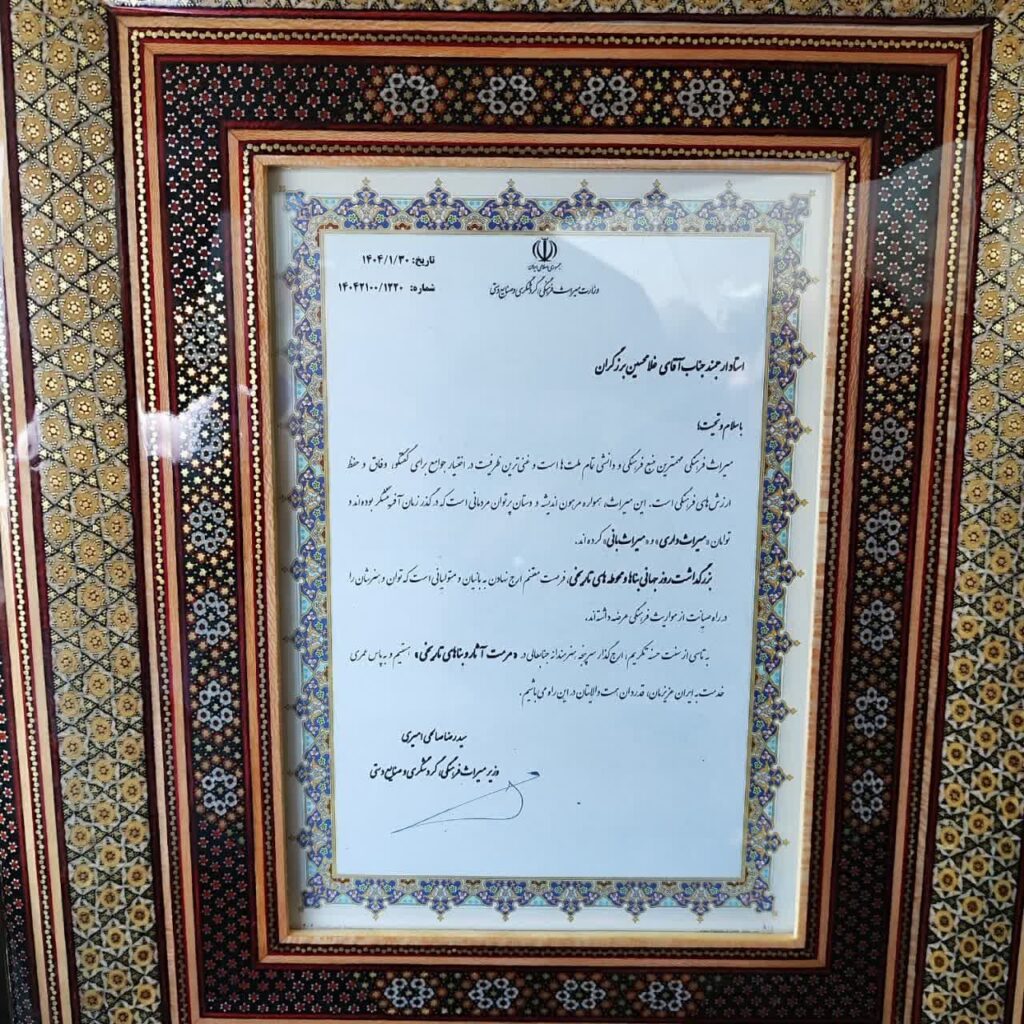 جمهوری اسلامی ایران
وزارت میراث فرهنگی، گردشگری و صنایع دستی
تاریخ: ۱۴۰۴/۱/۳۰
شماره: ۱۴۰۴۲۱۰۰/۱۲۲۰
استاد ارجمند جناب آقای غلامحسین برزگران
با سلام و تحیت؛
میراث فرهنگی مهمترین منبع فرهنگی و دانشی تمام ملت‌ها است و غنی‌ترین ظرفیت در اختیار جوامع برای گفتگو، وفاق و حفظ
ارزش‌های فرهنگی است. این میراث، همواره مرهون اندیشه و دستان پرتوان مردمانی است که در گذر زمان آفرینشگر بوده‌اند و
توامان «میراث‌داری» و «میراث‌بانی» کرده‌اند.
بزرگداشت روز جهانی بناها و محوطه‌های تاریخی، فرصت مغتنم ارج نهادن به بانیان و متولیانی است که توان و هنرشان را
در راه صیانت از مواریث فرهنگی عرضه داشته‌اند.
به تاسی از سنت حسنه تکریم، ارج‌گذار سرپنجه هنرمندانه جنابعالی در «مرمت آثار و بناهای تاریخی» هستیم و به پاس عمری
خدمت به ایران عزیزمان، قدردان همت والایتان در این راه می‌باشیم.
سیدرضا صالحی امیری
وزیر میراث فرهنگی، گردشگری و صنایع دستی